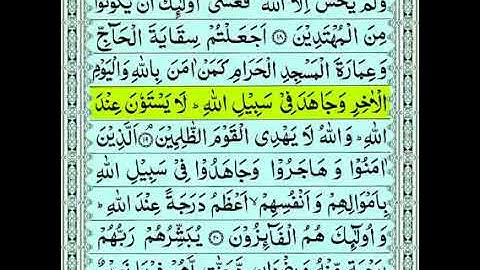 وَلَمْ يَخْشَ اِلَّا اللّٰهَ فَعَسٰۤى اُولٰٓئِكَ اَنْ يَّكُوْنُوْا
مِنَ الْمُهْتَدِيْنَ ﴿۱۸﴾ اَجَعَلْتُمْ سِقَايَةَ الْحَآجِّ
وَعِمَارَةَ الْمَسْجِدِ الْحَرَامِ كَمَنْ اٰمَنَ بِاللّٰهِ وَالْيَوْمِ
الْاٰخِرِ وَجَاهَدَ فِىْ سَبِيْلِ اللّٰهِ ؕ لَا يَسْتَوٗنَ عِنْدَ
اللّٰهِ ؕ وَاللّٰهُ لَا يَهْدِى الْقَوْمَ الظّٰلِمِيْنَ ﴿۱۹﴾ اَلَّذِيْنَ
اٰمَنُوْا وَهَاجَرُوْا وَجَاهَدُوْا فِىْ سَبِيْلِ اللّٰهِ
بِاَمْوَالِهِمْ وَاَنْفُسِهِمْ ۙ اَعْظَمُ دَرَجَةً عِنْدَ اللّٰهِ ؕ
وَاُولٰٓئِكَ هُمُ الْفَآئِزُوْنَ ﴿۲۰﴾ يُبَشِّرُهُمْ رَبُّهُمْ